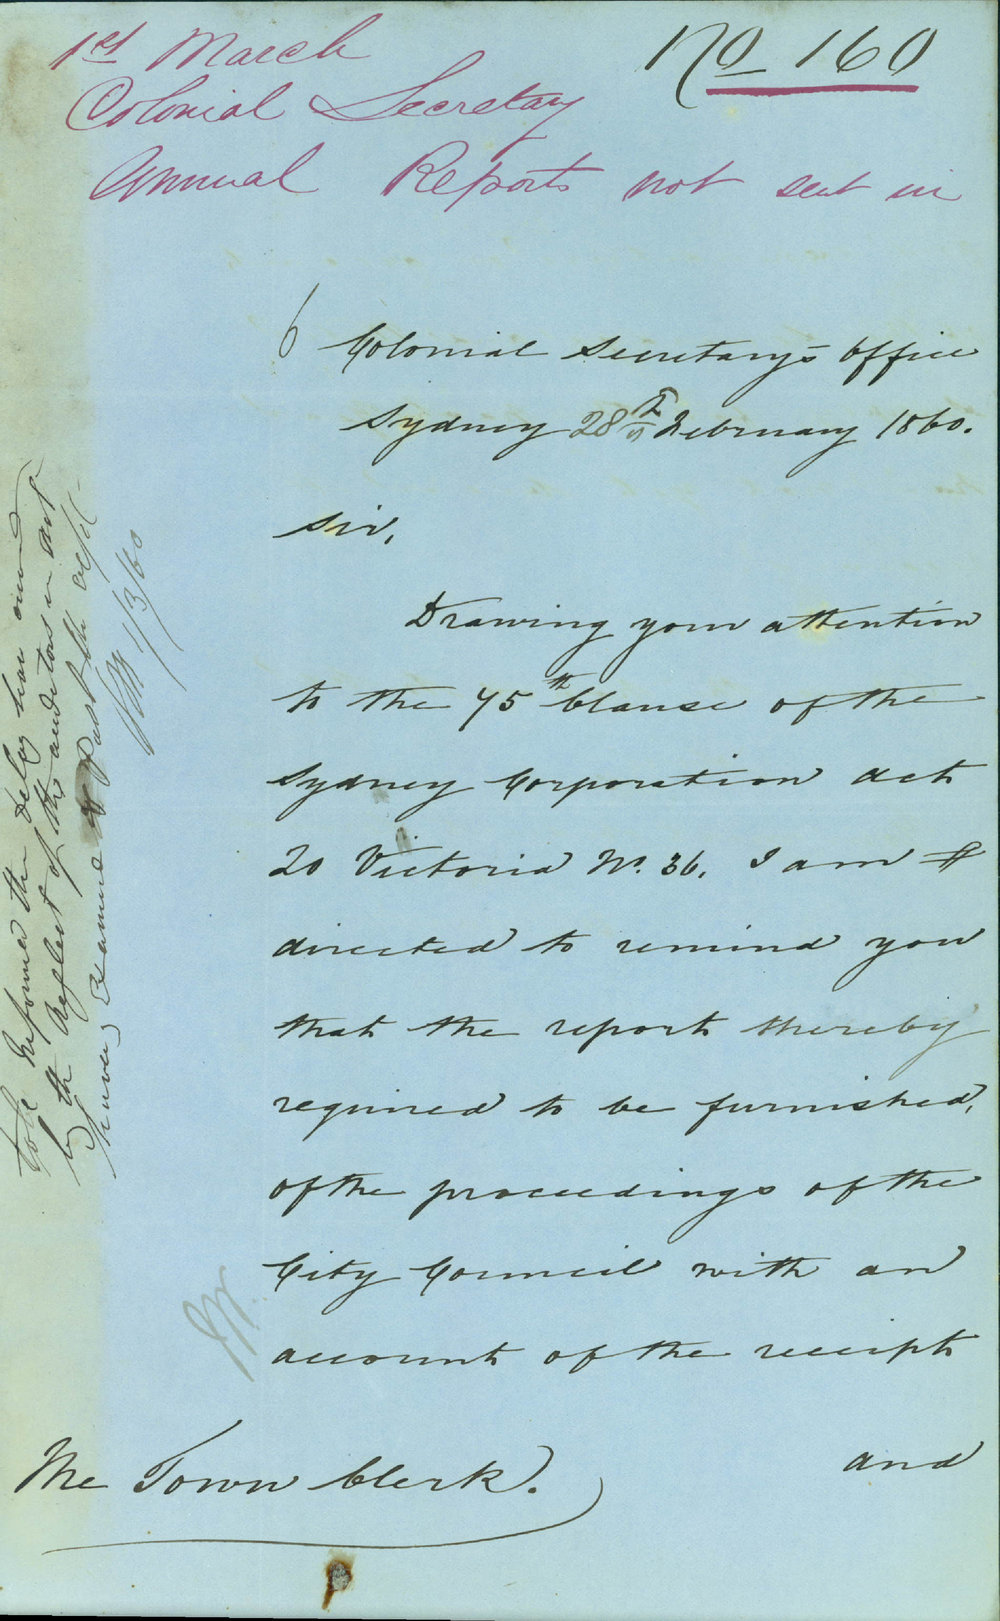 No 160
1st March
Colonial Secretary
Annual Reports not sent in
Colonial Secretary's Office
Sydney 28th February 1860.
Sir,
Drawing your attention
to the 75th Clause of the
Sydney Corporation Act
20 Victoria No. 36. I am
directed to remind you
that the report thereby
required to be furnished,
of the proceedings of the
City Council with an
account of the receipts
and
The Town Clerk.
To be informed the delay has
by the neglect of the auditors in not
having examined
1/3/60